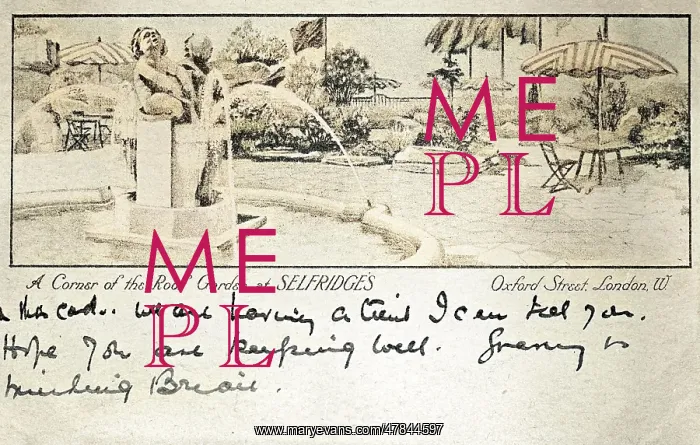 ME
PL
ME
PL
A Corner of the Roof Garden at SELFRIDGE'S Oxford Street, London, W.
this card. We are having a time I can tell you.
Hope you are keeping well. Granny is
minding Brian.
www.maryevans.com/47844597